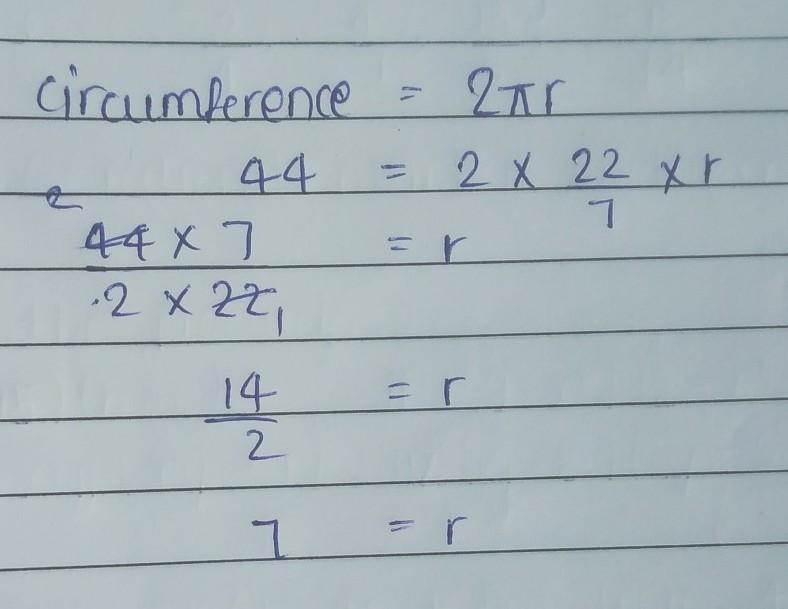 circumference = 2πr
44 = 2 × 22/7 × r
2
44 × 7 / 2 × 22 1 = r
14/2 = r
7 = r